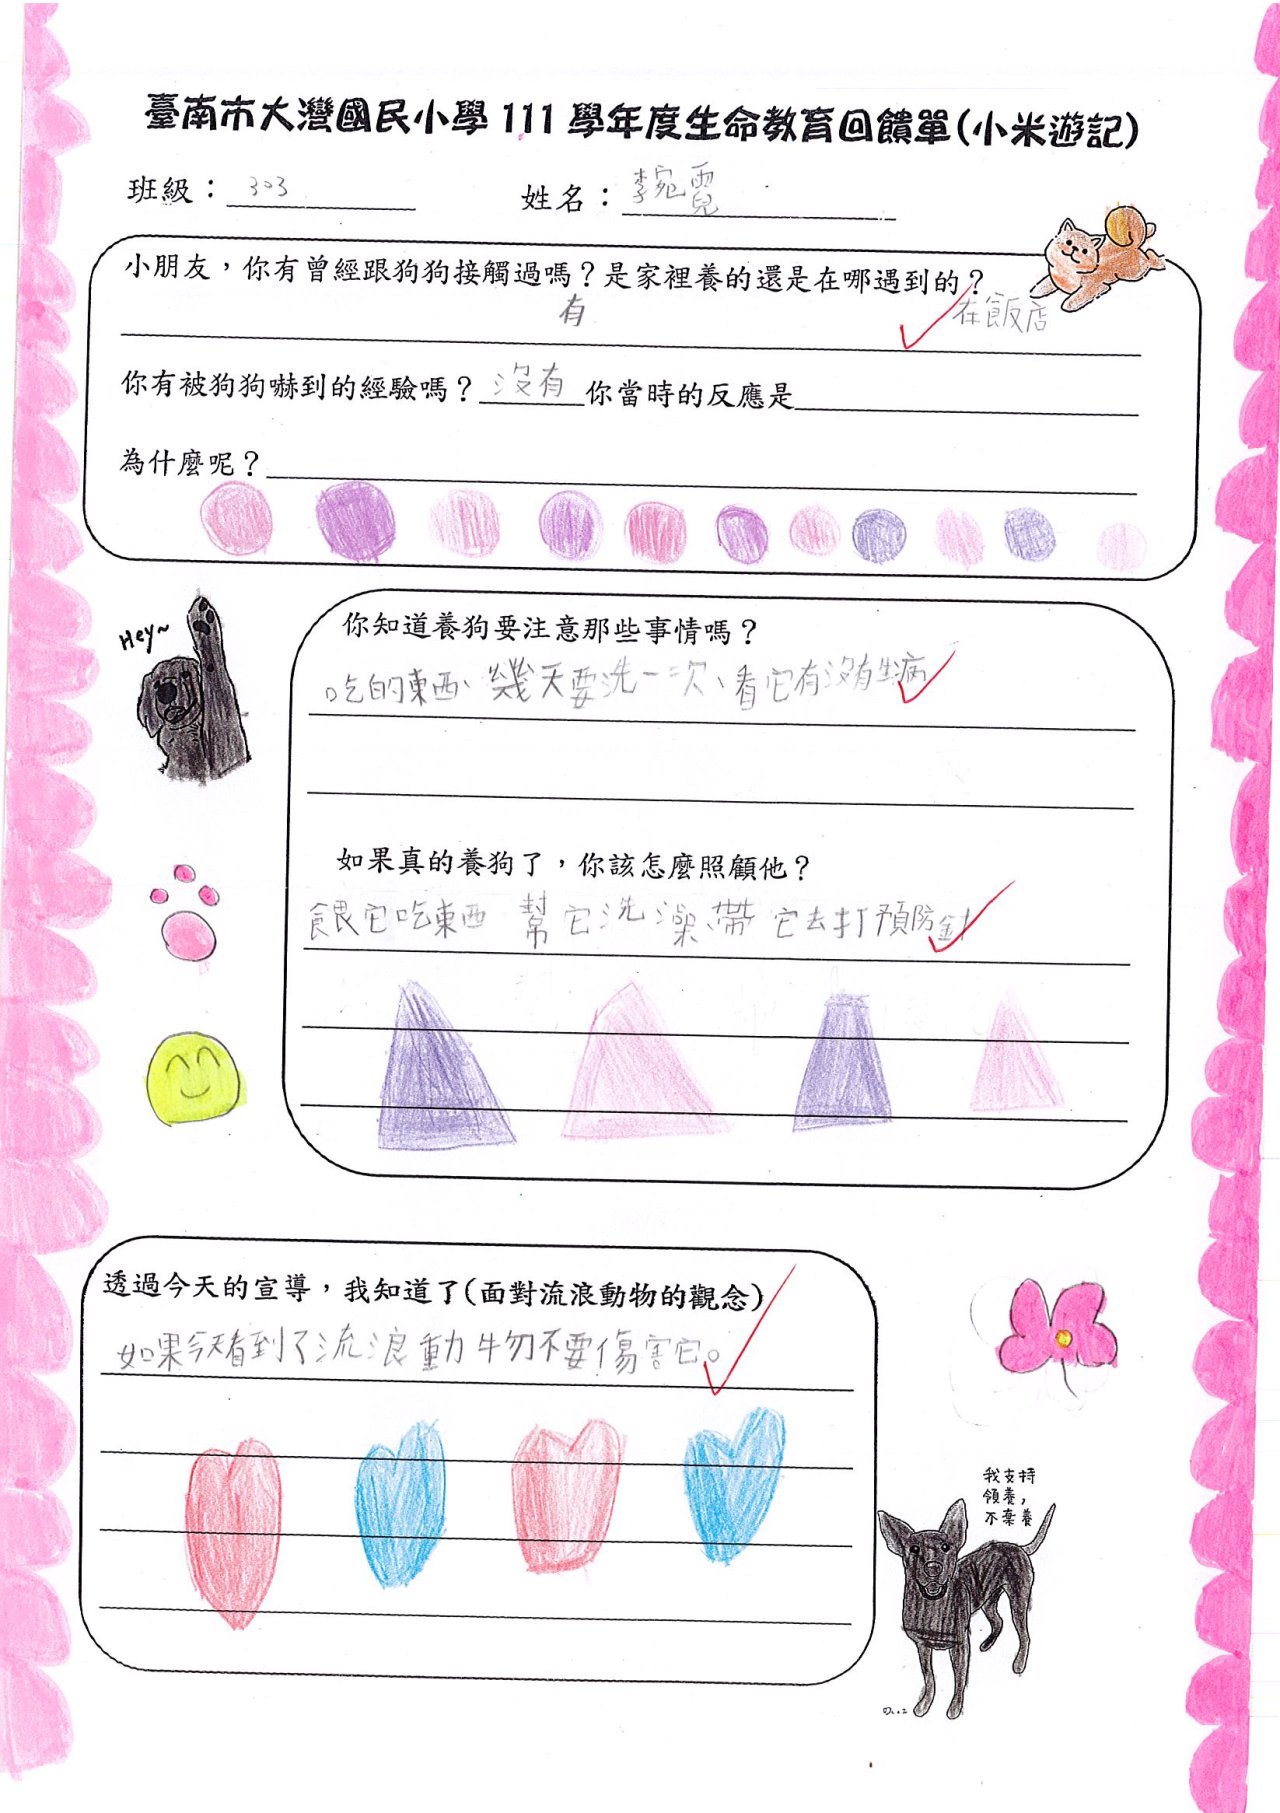 臺南市大灣國民小學 111 學年度生命教育回饋單(小米遊記)
班級：303 姓名：李宛霓
小朋友，你有曾經跟狗狗接觸過嗎？是家裡養的還是在哪遇到的？
有 在飯店
你有被狗狗嚇到的經驗嗎？沒有你當時的反應是
為什麼呢？
Hey~
你知道養狗要注意那些事情嗎？
吃的東西、幾天要洗一次、看它有沒有生病
如果真的養狗了，你該怎麼照顧他？
餵它吃東西 幫它洗澡、帶它去打預防針
透過今天的宣導，我知道了(面對流浪動物的觀念)
如果今天看到了流浪動物不要傷害它。
我支持
領養，
不棄養